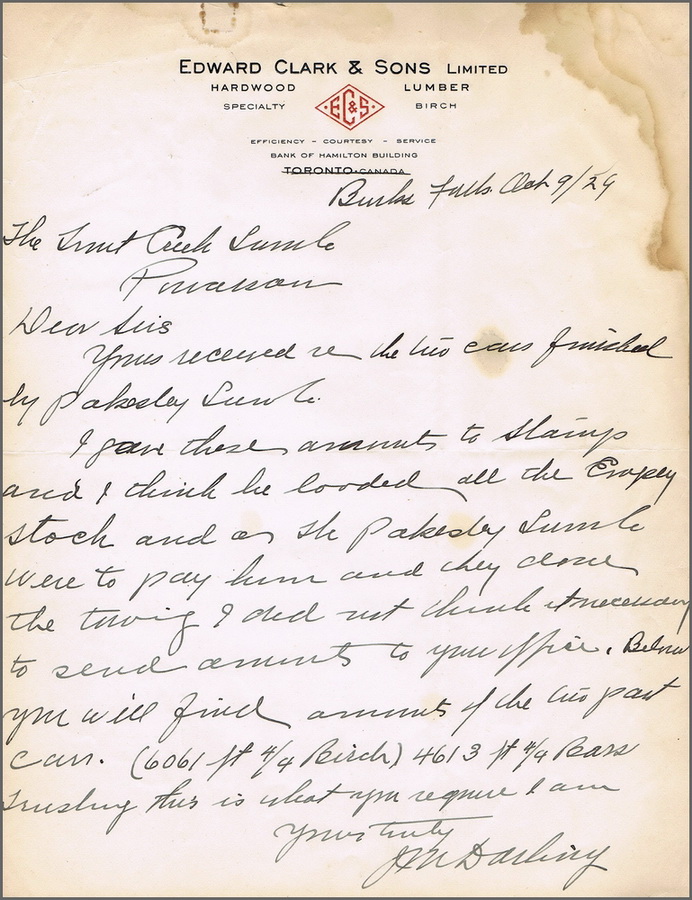 EDWARD CLARK & SONS LIMITED
HARDWOOD LUMBER
SPECIALTY BIRCH
E C & S
EFFICIENCY – COURTESY – SERVICE
BANK OF HAMILTON BUILDING
TORONTO-CANADA
Burks Falls. Oct 9/29
The Trout Creek Lumb Co
Powassan
Dear Sirs
Yours received re the two cars finished
by Pakesley Lumb Co.
I gave these amounts to Stamp
and I think he loaded all the
stock and as the Pakesley Lumb Co
were to pay him and they done
the towing I did not think it necessary
to send amounts to your office. Below
you will find amounts of the two part
cars. (6061 ft 4/4 Birch) 4613 ft 4/4 Bass
Trusting this is what you require I am
Yours truly
J M Darling